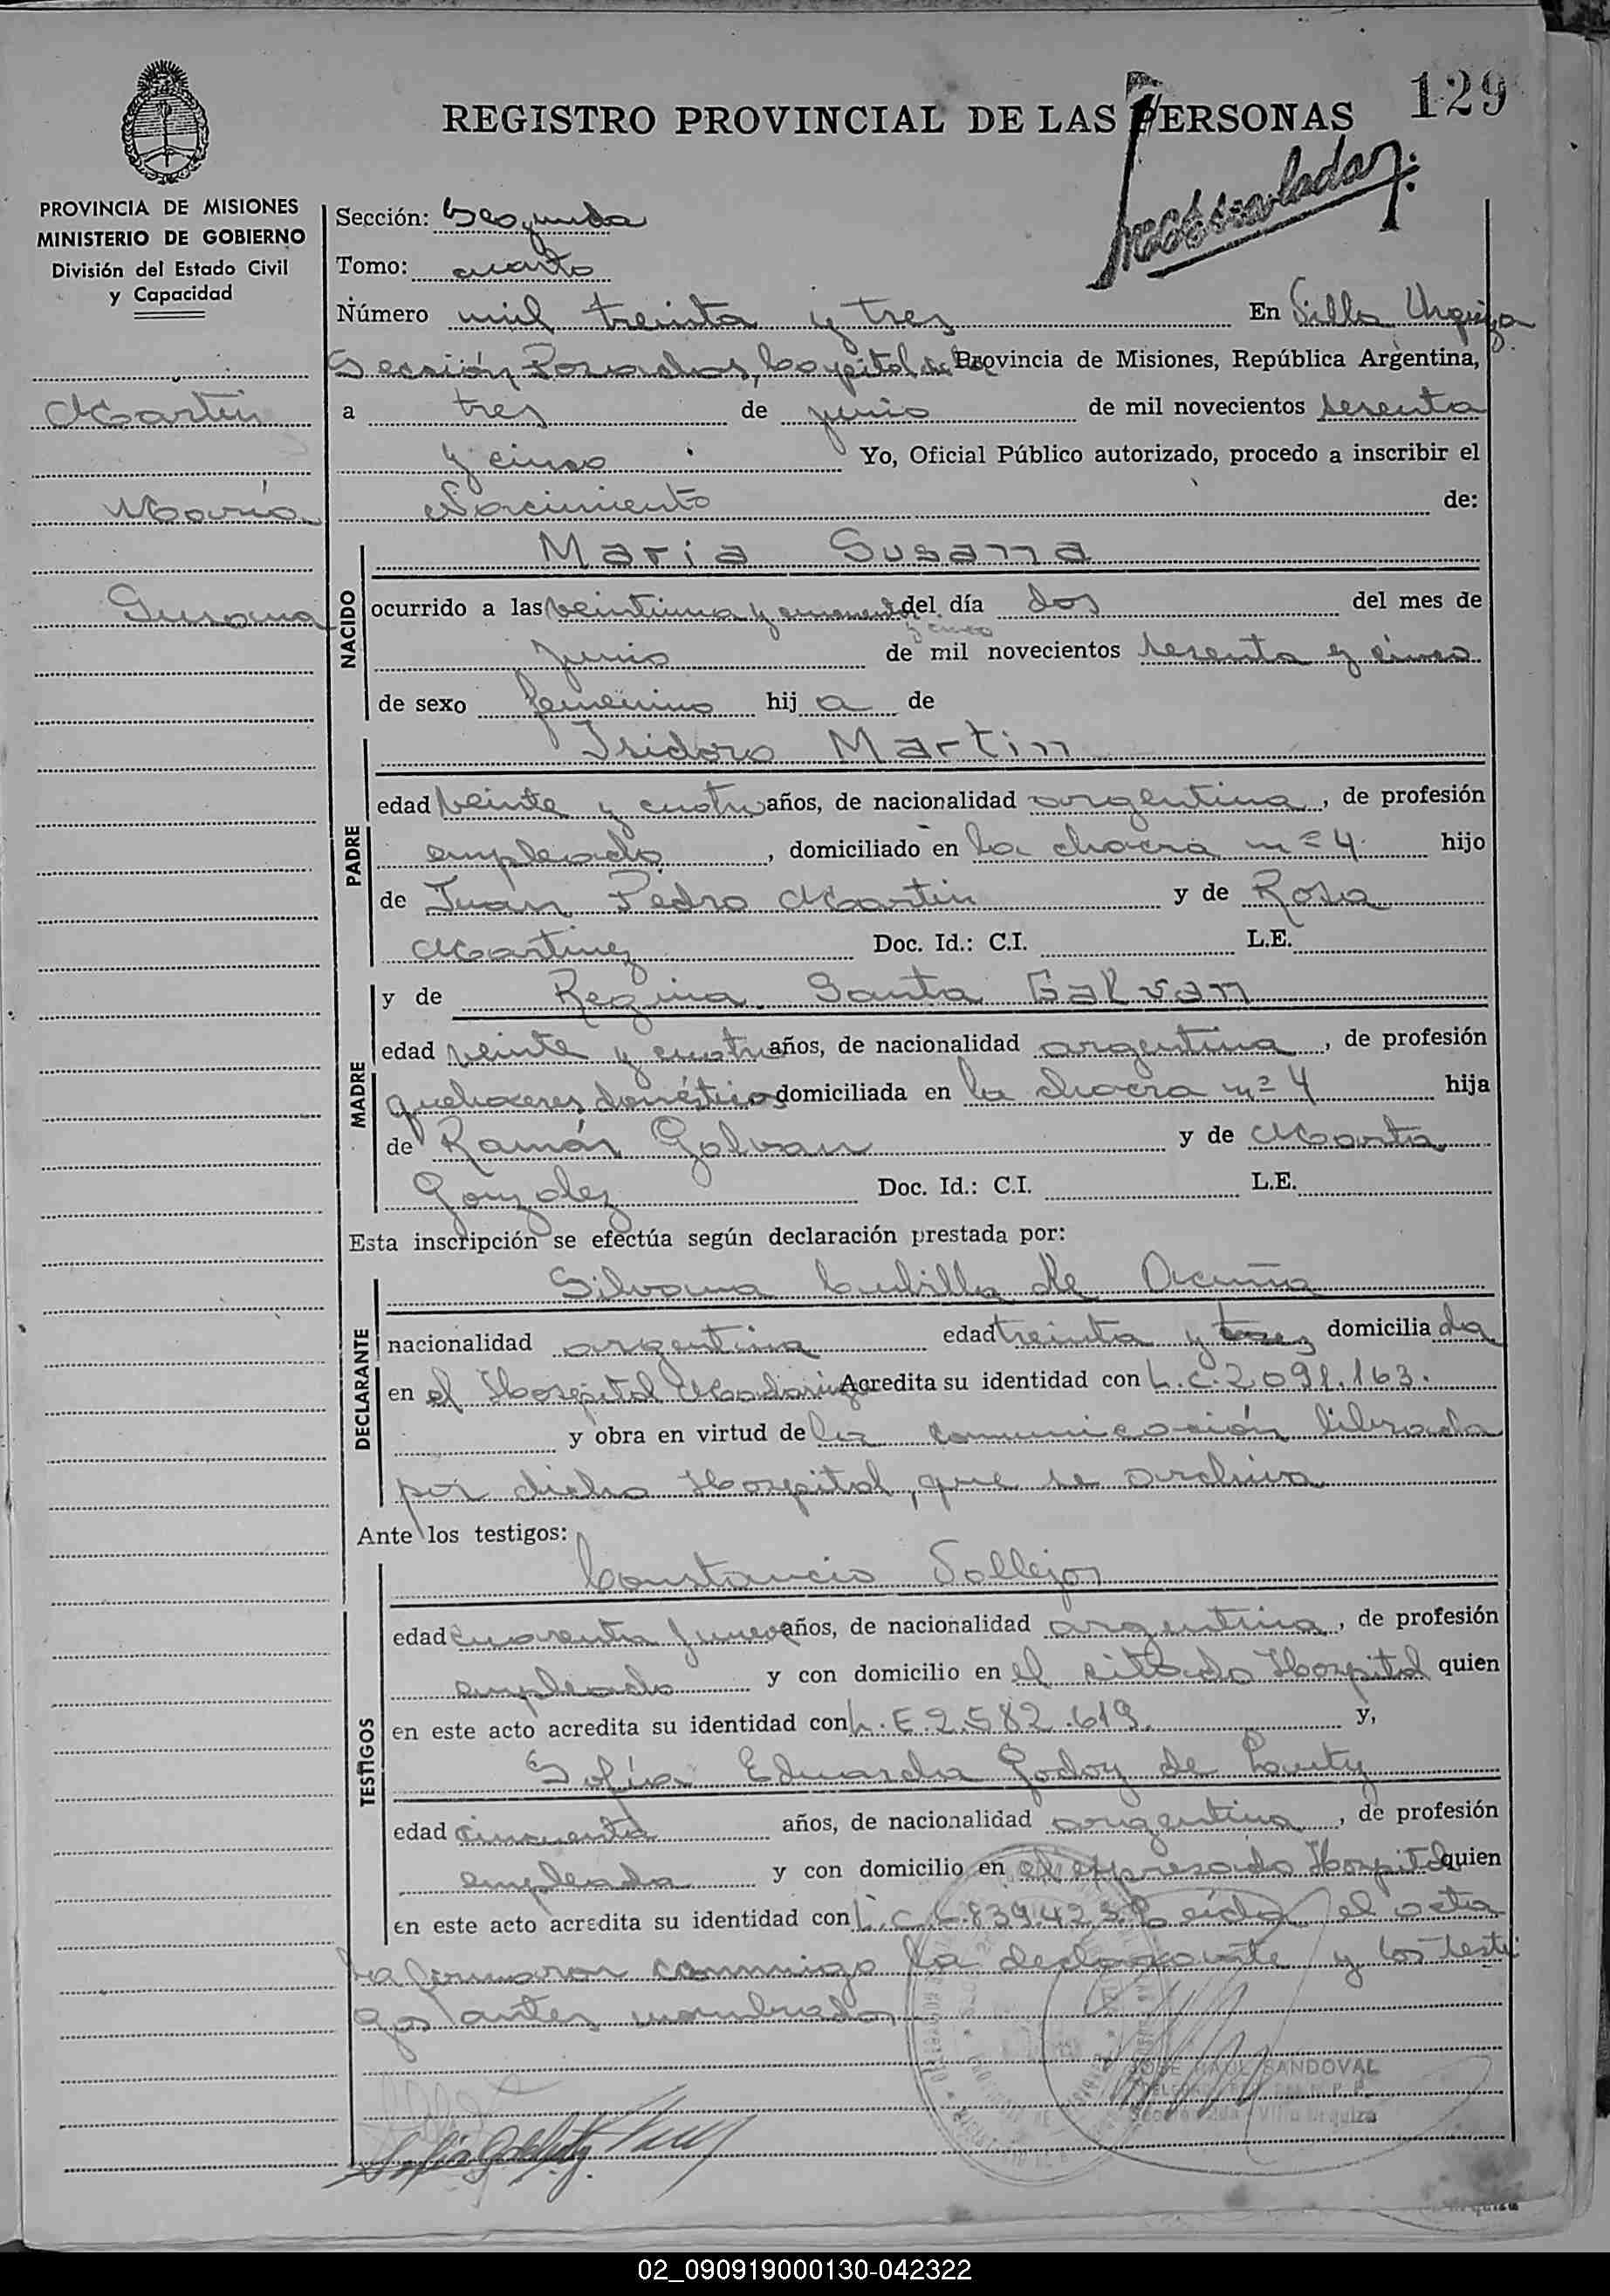 129
REGISTRO PROVINCIAL DE LAS PERSONAS
PROVINCIA DE MISIONES
MINISTERIO DE GOBIERNO
División del Estado Civil
y Capacidad
Martin
María
Susana
Sección: Segunda
Tomo: cuarto
Número mil treinta y tres En Villa Urquiza
Sección Posadas, Capital de la Provincia de Misiones, República Argentina,
a tres de junio de mil novecientos sesenta
y cinco Yo, Oficial Público autorizado, procedo a inscribir el
Nacimiento de:
NACIDO
Maria Susana
ocurrido a las veintiuna y cuarenta del día dos del mes de
y cinco
junio de mil novecientos sesenta y cinco
de sexo femenino hij a de
PADRE
Isidoro Martin
edad veinte y cuatro años, de nacionalidad argentina, de profesión
empleado, domiciliado en la chacra nº 4 hijo
de Juan Pedro Martin y de Rosa
Martinez Doc. Id.: C.I. L.E.
MADRE
y de Regina Santa Galvan
edad veinte y cuatro años, de nacionalidad argentina, de profesión
quehaceres domésticos domiciliada en la chacra nº 4 hija
de Ramón Galvan y de Marta
Gonzalez Doc. Id.: C.I. L.E.
Esta inscripción se efectúa según declaración prestada por:
DECLARANTE
Silvana Cubilla de Acuña
nacionalidad argentina edad treinta y tres domicilia da
en el Hospital Madariaga Acredita su identidad con L.C. 2.091.163.
y obra en virtud de la comunicación librada
por dicho Hospital, que se archiva
Ante los testigos:
TESTIGOS
Constancio Vallejos
edad cuarenta y nueve años, de nacionalidad argentina, de profesión
empleado y con domicilio en el citado Hospital quien
en este acto acredita su identidad con L.E. 2.582.619. y,
Sofía Eduarda Godoy de
edad cincuenta años, de nacionalidad argentina, de profesión
empleada y con domicilio en el expresado Hospital quien
en este acto acredita su identidad con L.C. Leída el acta
la firmaron conmigo la declarante y los testi
gos antes nombrados
JOSE RAUL SANDOVAL
Sección 2da. Villa Urquiza
02_090919000130-042322